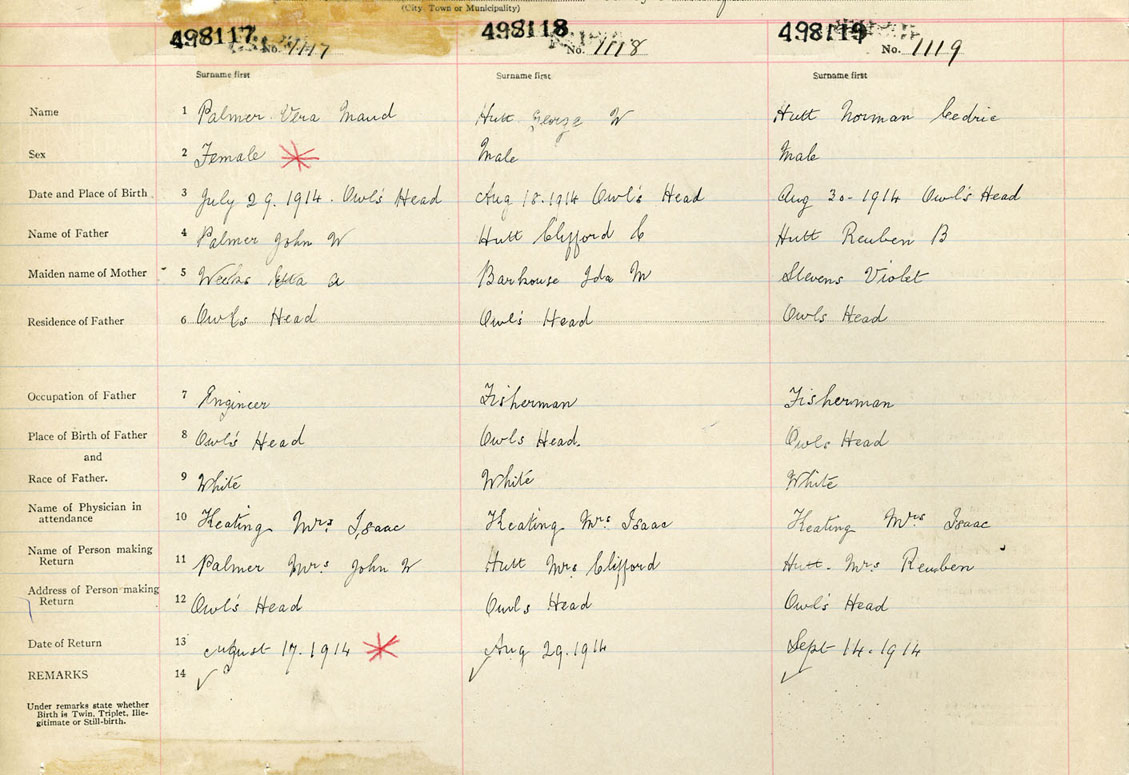 (City Town or Municipality)
498117 No. 1117 498118 No. 1118 498119 No. 1119
Surname first Surname first Surname first
Name 1 Palmer Vera Maud Hutt George W Hutt Norman Cedric
Sex 2 Female Male Male
Date and Place of Birth 3 July 29. 1914. Owl's Head Aug 18. 1914 Owl's Head Aug 30 - 1914 Owl's Head
Name of Father 4 Palmer John W Hutt Clifford C Hutt Reuben B
Maiden name of Mother 5 Weeks Etta A Barkouse Ida M Stevens Violet
Residence of Father 6 Owls Head Owl's Head Owls Head
Occupation of Father 7 Engineer Fisherman Fisherman
Place of Birth of Father 8 Owl's Head Owls Head. Owls Head
and
Race of Father. 9 White White White
Name of Physician in
attendance 10 Keating Mrs Isaac Keating Mrs Isaac Keating Mrs Isaac
Name of Person making
Return 11 Palmer Mrs John W Hutt Mrs Clifford Hutt - Mrs Reuben
Address of Person making
Return 12 Owl's Head Owls Head Owl's Head
Date of Return 13 August 17. 1914 Aug 29. 1914 Sept 14. 1914
REMARKS 14
Under remarks state whether
Birth is Twin, Triplet, Ille-
gitimate or Still-birth.